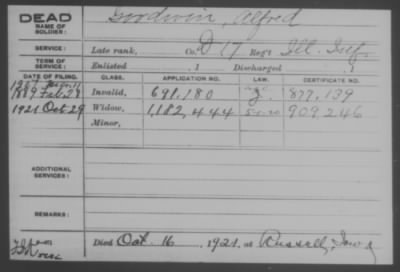 DEAD
NAME OF SOLDIER: Goodwin, Alfred
SERVICE: Late rank, Co. D 17 Reg't Ill. Inf.
TERM OF SERVICE: Enlisted , 1 Discharged , 1
DATE OF FILING. CLASS. APPLICATION NO. LAW. CERTIFICATE NO.
1889 Feb 28 Invalid, 691,180 877,139
1921 Oct 29 Widow, 1,182,444 909,246
Minor,
ADDITIONAL SERVICES:
REMARKS:
Died Oct. 16, 1921, at Russell, Iowa